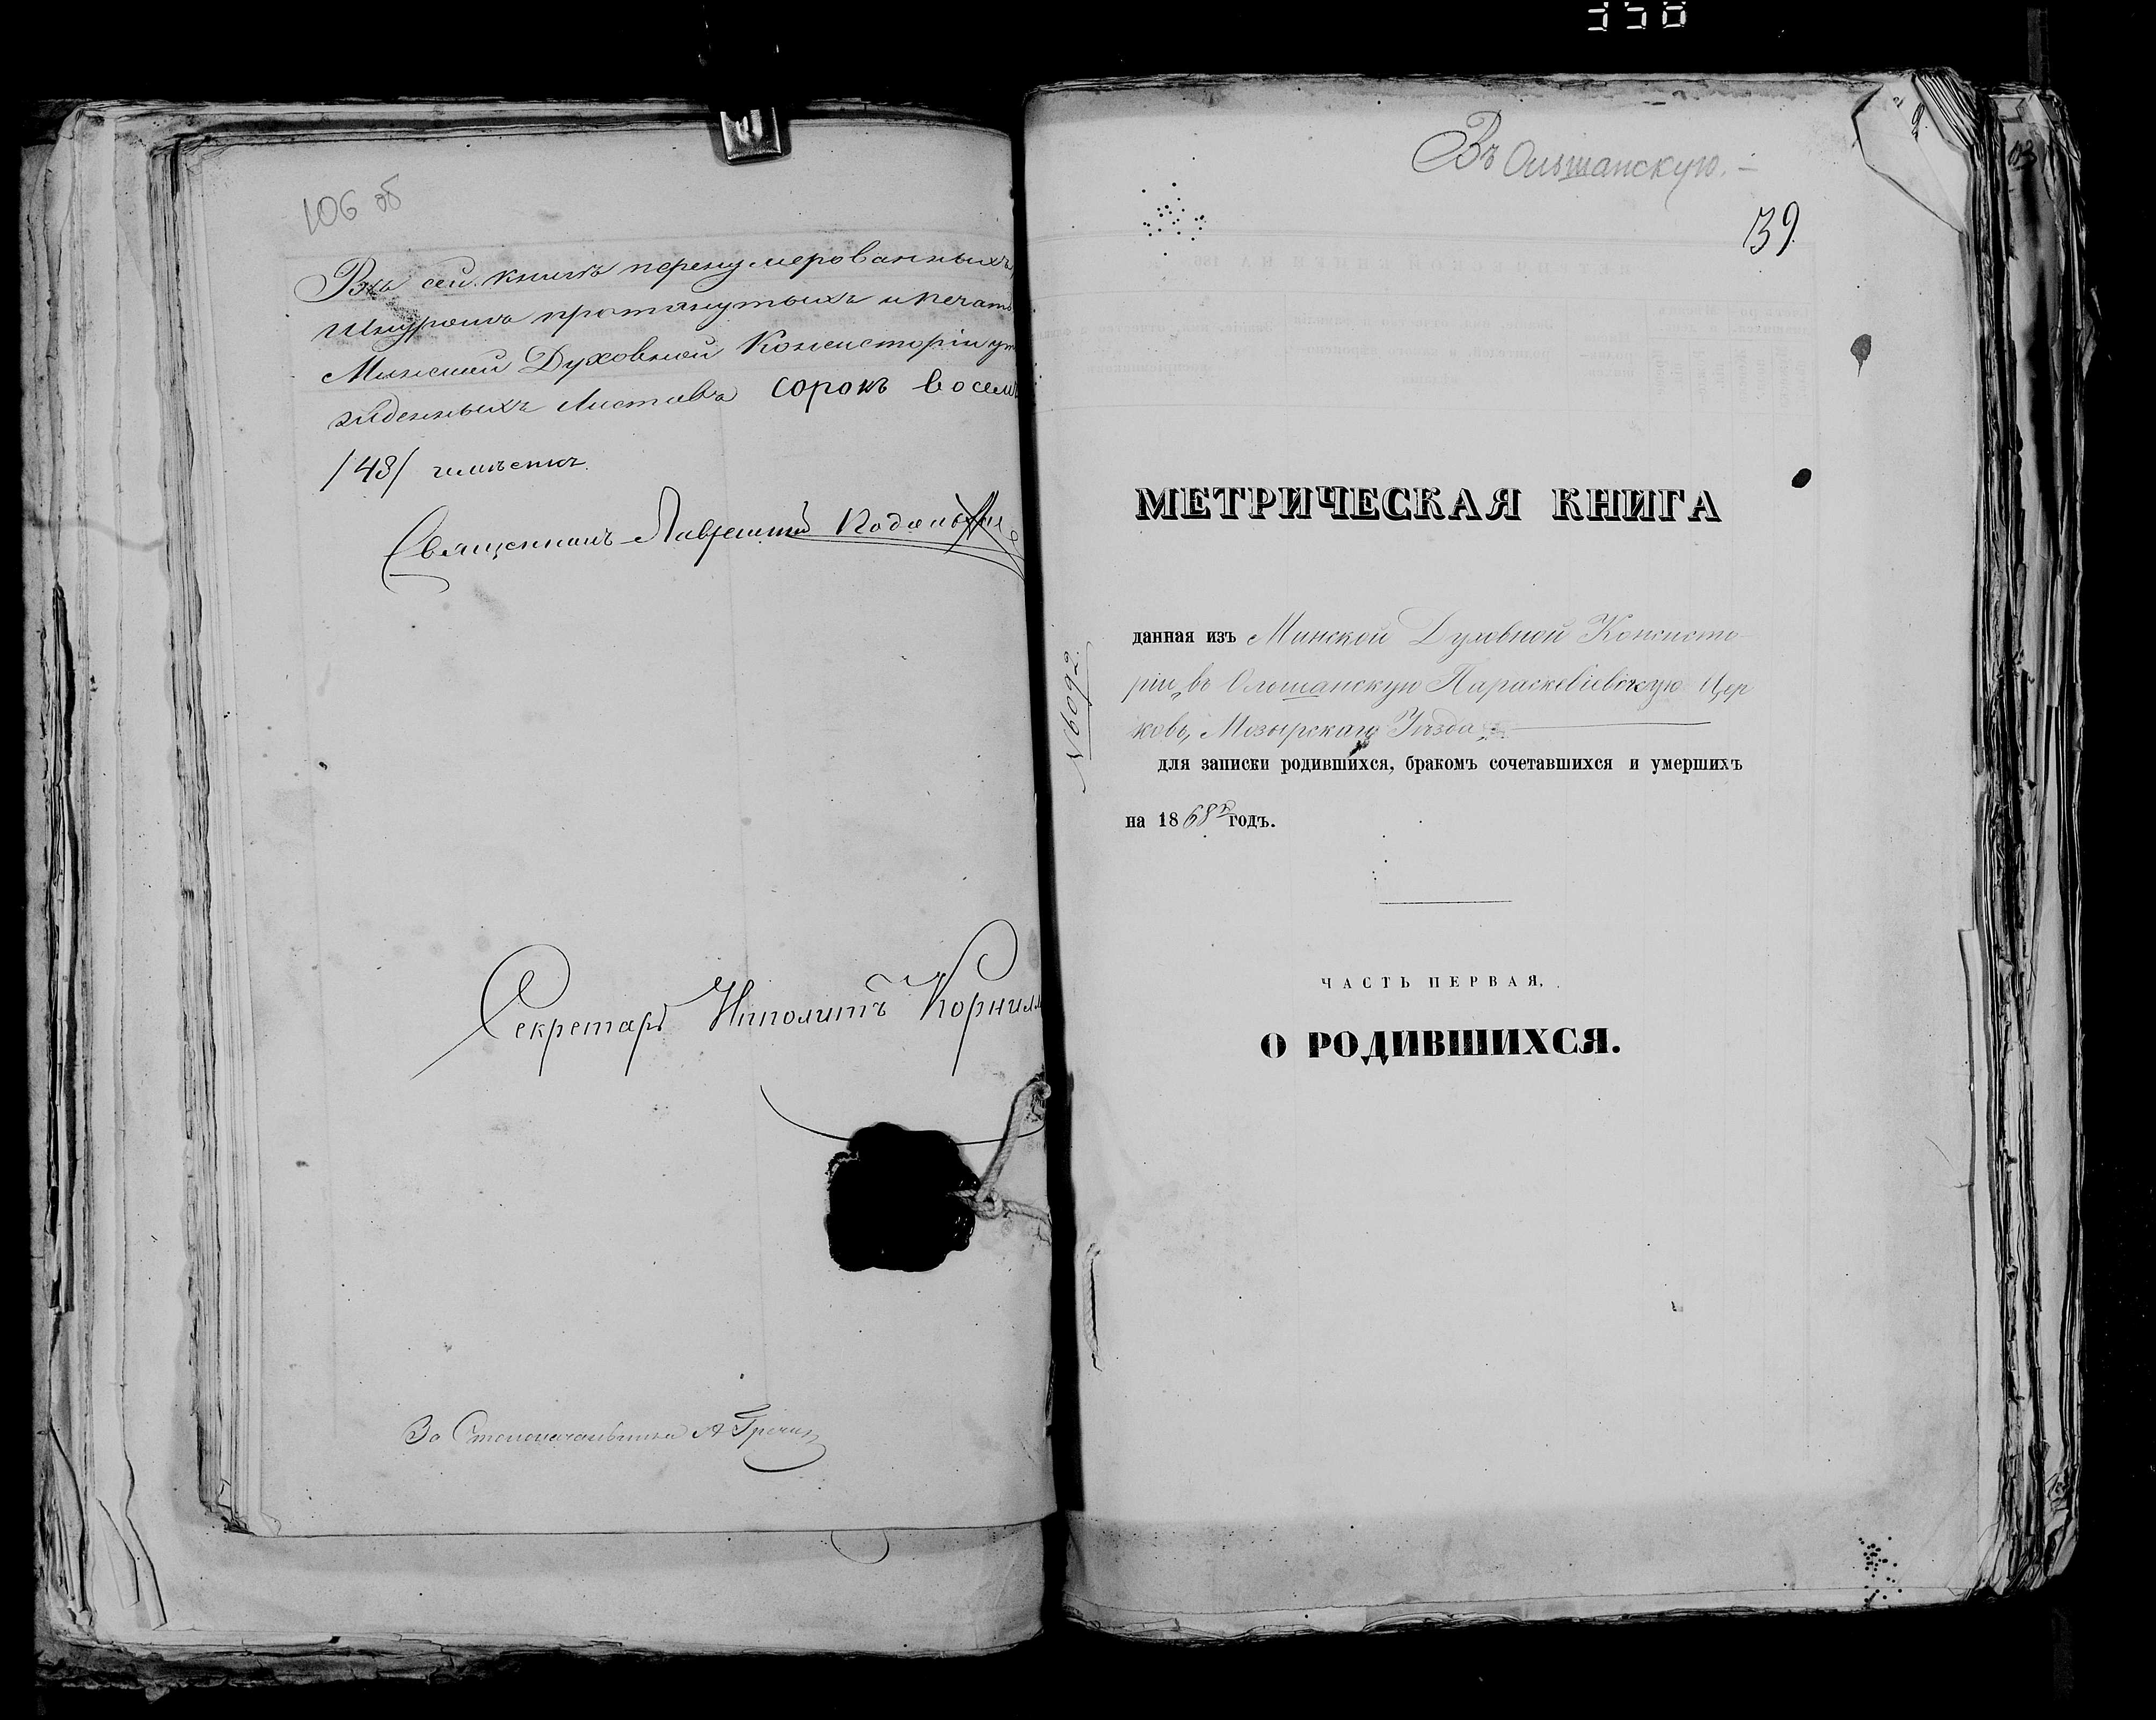 106 об
Въ сей книгѣ перенумерованныхъ,
Шнуромъ протянутыхъ и печат
Минской Духовной Консисторіи ут
жденныхъ Листовъ сорокъ восем
/48/ числомъ
Священникъ Лаврентій
Секретарь Ипполитъ Корнил
За Столоначальника А
Въ Ольшанскую.
139
МЕТРИЧЕСКАЯ КНИГА
данная изъ Минской Духовной Консисто
ріи, въ Ольшанскую Параскевіевскую Цер
ковь, Мозырскаго Уѣзда
№ 6092
для записки родившихся, бракомъ сочетавшихся и умершихъ
на 1868й годъ.
ЧАСТЬ ПЕРВАЯ.
О РОДИВШИХСЯ.